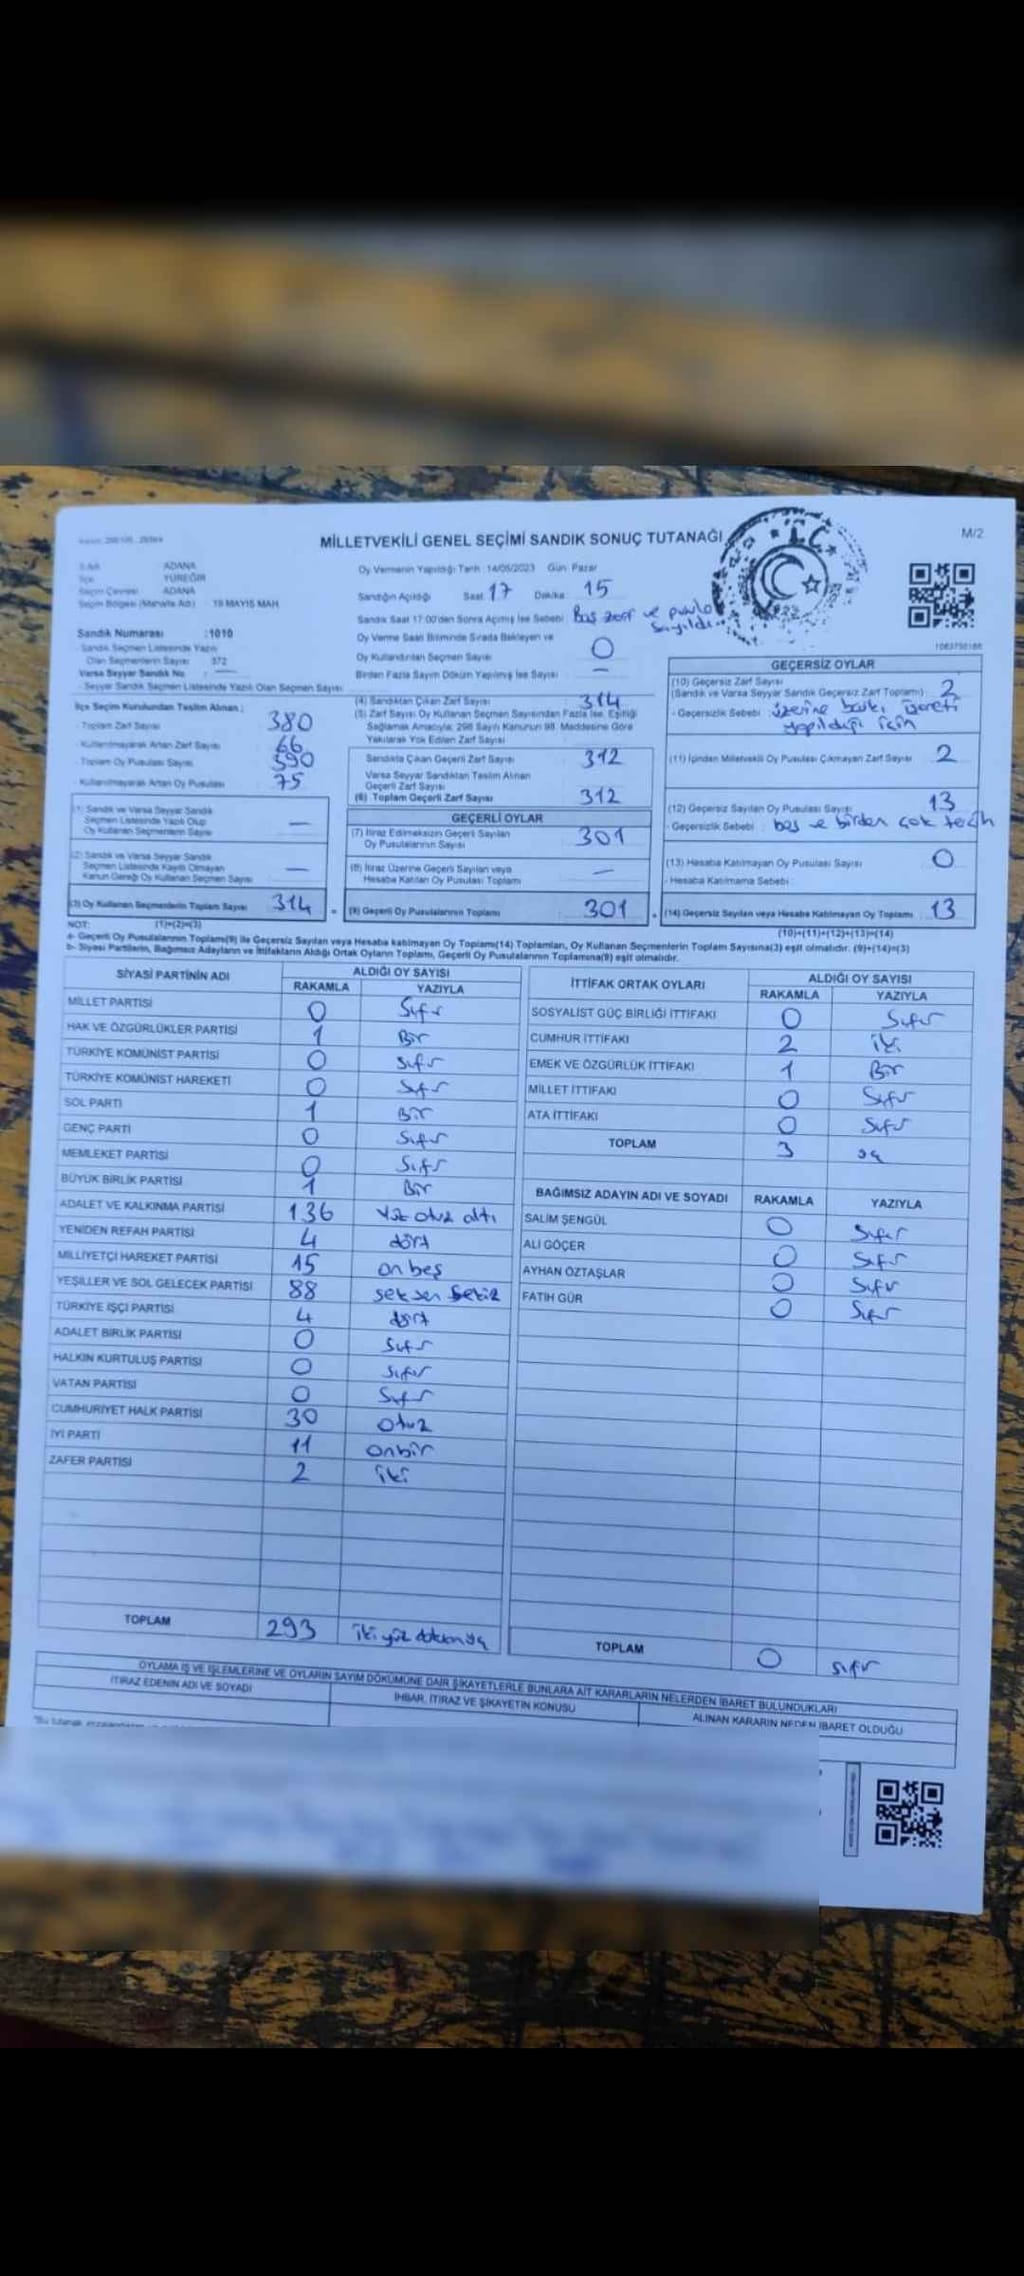 MİLLETVEKİLİ GENEL SEÇİMİ SANDIK SONUÇ TUTANAĞI
M/2
ADANA
İlçe YÜREĞİR
Seçim Çevresi ADANA
Seçim Bölgesi (Mahalle Adı) : 19 MAYIS MAH.
Oy Vermenin Yapıldığı Tarih : 14/05/2023 Gün: Pazar
Sandığın Açıldığı Saat: 17 Dakika: 15
Sandık Saat 17.00'den Sonra Açılmış İse Sebebi: Boş zarf ve pusula sayıldı.
Oy Verme Saati Bitiminde Sırada Bekleyen ve
Oy Kullandırılan Seçmen Sayısı 0
Birden Fazla Sayım Döküm Yapılmış İse Sayısı : —
Sandık Numarası : 1010
- Sandık Seçmen Listesinde Yazılı
Olan Seçmenlerin Sayısı : 372
Varsa Seyyar Sandık No : —
- Seyyar Sandık Seçmen Listesinde Yazılı Olan Seçmen Sayısı :
İlçe Seçim Kurulundan Teslim Alınan ;
- Toplam Zarf Sayısı 380
- Kullanılmayarak Artan Zarf Sayısı 66
- Toplam Oy Pusulası Sayısı 390
- Kullanılmayarak Artan Oy Pusulası 75
(1) Sandık ve Varsa Seyyar Sandık
Seçmen Listesinde Yazılı Olup
Oy Kullanan Seçmenlerin Sayısı —
(2) Sandık ve Varsa Seyyar Sandık
Seçmen Listesinde Kayıtlı Olmayan
Kanun Gereği Oy Kullanan Seçmen Sayısı —
(3) Oy Kullanan Seçmenlerin Toplam Sayısı 314
(4) Sandıktan Çıkan Zarf Sayısı : 314
(5) Zarf Sayısı Oy Kullanan Seçmen Sayısından Fazla İse, Eşitliği
Sağlamak Amacıyla; 298 Sayılı Kanunun 98. Maddesine Göre
Yakılarak Yok Edilen Zarf Sayısı
Sandıkta Çıkan Geçerli Zarf Sayısı : 312
Varsa Seyyar Sandıktan Teslim Alınan
Geçerli Zarf Sayısı
(6) Toplam Geçerli Zarf Sayısı : 312
GEÇERLİ OYLAR
(7) İtiraz Edilmeksizin Geçerli Sayılan
Oy Pusulalarının Sayısı : 301
(8) İtiraz Üzerine Geçerli Sayılan veya
Hesaba Katılan Oy Pusulası Toplamı : —
(9) Geçerli Oy Pusulalarının Toplamı : 301
GEÇERSİZ OYLAR
(10) Geçersiz Zarf Sayısı
(Sandık ve Varsa Seyyar Sandık Geçersiz Zarf Toplamı) : 2
- Geçersizlik Sebebi : üzerine baskı işareti
yapıldığı için
(11) İçinden Milletvekili Oy Pusulası Çıkmayan Zarf Sayısı : 2
(12) Geçersiz Sayılan Oy Pusulası Sayısı : 13
- Geçersizlik Sebebi : boş ve birden çok tercih
(13) Hesaba Katılmayan Oy Pusulası Sayısı : 0
- Hesaba Katılmama Sebebi :
(14) Geçersiz Sayılan veya Hesaba Katılmayan Oy Toplamı : 13
NOT: (1)+(2)=(3)
(10)+(11)+(12)+(13)=(14)
a- Geçerli Oy Pusulalarının Toplamı(9) ile Geçersiz Sayılan veya Hesaba katılmayan Oy Toplamı(14) Toplamları, Oy Kullanan Seçmenlerin Toplam Sayısına(3) eşit olmalıdır. (9)+(14)=(3)
b- Siyasi Partilerin, Bağımsız Adayların ve İttifakların Aldığı Ortak Oyların Toplamı, Geçerli Oy Pusulalarının Toplamına(9) eşit olmalıdır.
SİYASİ PARTİNİN ADI ALDIĞI OY SAYISI
RAKAMLA YAZIYLA
MİLLET PARTİSİ 0 Sıfır
HAK VE ÖZGÜRLÜKLER PARTİSİ 1 Bir
TÜRKİYE KOMÜNİST PARTİSİ 0 Sıfır
TÜRKİYE KOMÜNİST HAREKETİ 0 Sıfır
SOL PARTİ 1 Bir
GENÇ PARTİ 0 Sıfır
MEMLEKET PARTİSİ 0 Sıfır
BÜYÜK BİRLİK PARTİSİ 1 Bir
ADALET VE KALKINMA PARTİSİ 136 Yüz otuz altı
YENİDEN REFAH PARTİSİ 4 dört
MİLLİYETÇİ HAREKET PARTİSİ 15 on beş
YEŞİLLER VE SOL GELECEK PARTİSİ 88 seksen sekiz
TÜRKİYE İŞÇİ PARTİSİ 4 dört
ADALET BİRLİK PARTİSİ 0 Sıfır
HALKIN KURTULUŞ PARTİSİ 0 Sıfır
VATAN PARTİSİ 0 Sıfır
CUMHURİYET HALK PARTİSİ 30 otuz
İYİ PARTİ 11 onbir
ZAFER PARTİSİ 2 iki
TOPLAM 293 iki yüz doksan üç
İTTİFAK ORTAK OYLARI ALDIĞI OY SAYISI
RAKAMLA YAZIYLA
SOSYALİST GÜÇ BİRLİĞİ İTTİFAKI 0 Sıfır
CUMHUR İTTİFAKI 2 iki
EMEK VE ÖZGÜRLÜK İTTİFAKI 1 Bir
MİLLET İTTİFAKI 0 Sıfır
ATA İTTİFAKI 0 Sıfır
TOPLAM 3 üç
BAĞIMSIZ ADAYIN ADI VE SOYADI RAKAMLA YAZIYLA
SALİM ŞENGÜL 0 Sıfır
ALİ GÖÇER 0 Sıfır
AYHAN ÖZTAŞLAR 0 Sıfır
FATİH GÜR 0 Sıfır
TOPLAM 0 sıfır
OYLAMA İŞ VE İŞLEMLERİNE VE OYLARIN SAYIM DÖKÜMÜNE DAİR ŞİKAYETLERLE BUNLARA AİT KARARLARIN NELERDEN İBARET BULUNDUKLARI
İTİRAZ EDENİN ADI VE SOYADI
İHBAR, İTİRAZ VE ŞİKAYETİN KONUSU
ALINAN KARARIN NEDEN İBARET OLDUĞU